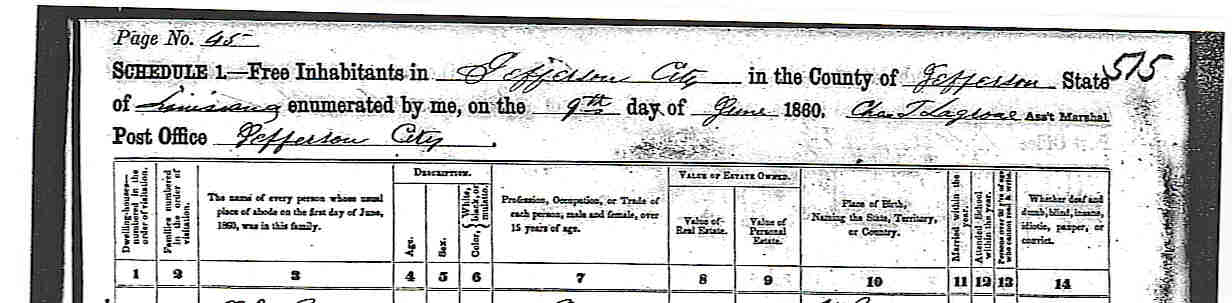 Page No. 45
515
SCHEDULE 1.—Free Inhabitants in Jefferson City in the County of Jefferson State
of Louisiana enumerated by me, on the 9th day of June 1860. Chas T Ass't Marshal
Post Office Jefferson City.
DESCRIPTION.
VALUE OF ESTATE OWNED.
Dwelling-houses—numbered in the order of visitation.
Families numbered in the order of visitation.
The name of every person whose usual
place of abode on the first day of June,
1860, was in this family.
Age.
Sex.
Color, { White, black, or mulatto.
Profession, Occupation, or Trade of
each person, male and female, over
15 years of age.
Value of
Real Estate.
Value of
Personal
Estate.
Place of Birth,
Naming the State, Territory,
or Country.
Married within the year.
Attended School within the year.
Persons over 20 y'rs of age who cannot read & write.
Whether deaf and
dumb, blind, insane,
idiotic, pauper, or
convict.
1 2 3 4 5 6 7 8 9 10 11 12 13 14